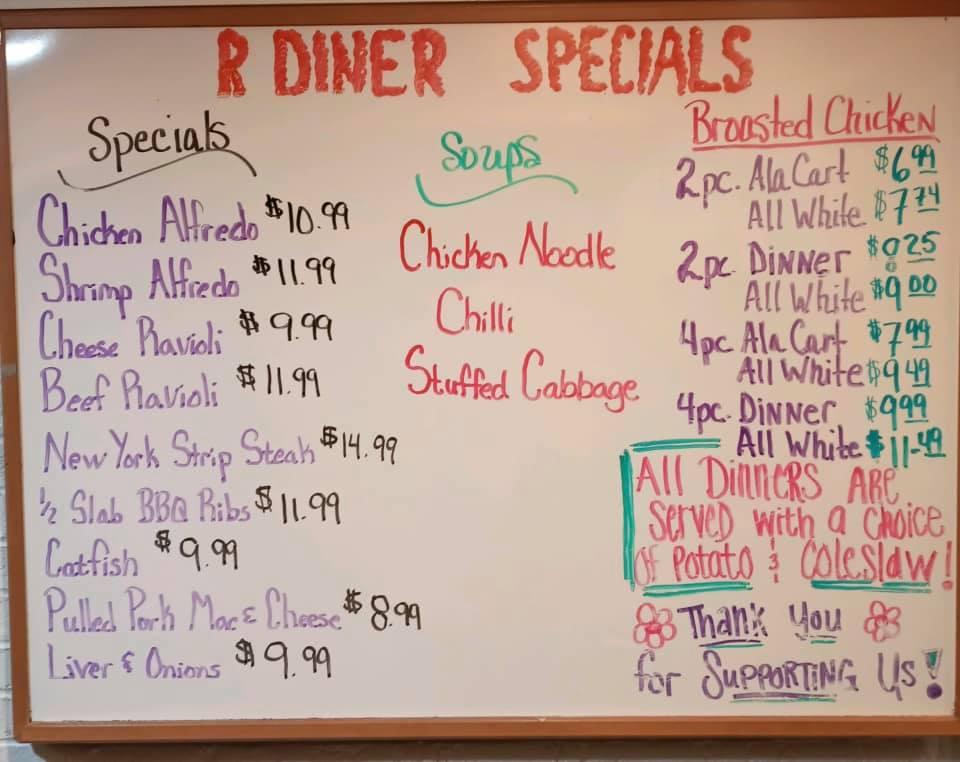 R DINER SPECIALS
Specials
Chicken Alfredo $10.99
Shrimp Alfredo $11.99
Cheese Ravioli $9.99
Beef Ravioli $11.99
New York Strip Steak $14.99
1/2 Slab BBQ Ribs $11.99
Catfish $9.99
Pulled Pork Mac & Cheese $8.99
Liver & Onions $9.99
Soups
Chicken Noodle
Chilli
Stuffed Cabbage
Broasted Chicken
2pc. Ala Cart $6.99
All White $7.74
2pc. Dinner
All White $9.00
4pc Ala Cart $7.99
All White $9.49
4pc. Dinner $9.99
All White $11.49
All Dinners Are
Served with a choice
Of Potato & Coleslaw!
Thank You
for Supporting Us!